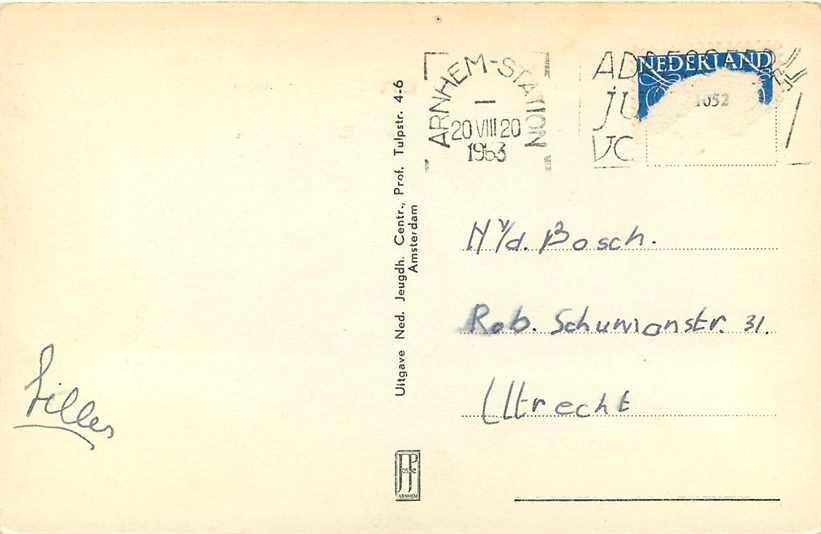 ARNHEM-STATION
20 VIII 20
1963
NEDERLAND
1052
Uitgave Ned. Jeugdh. Centr., Prof. Tulpstr. 4-6
Amsterdam
H v/d. Bosch.
Rob. Schumanstr. 31.
Utrecht
JosPé
ARNHEM